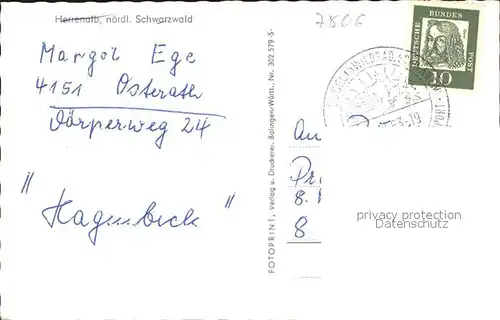 Herrenalb, nördl. Schwarzwald
7806
Margot Ege
4151 Osterath
Dörperweg 24
" Hagenbeck "
FOTOPRINT, Verlag u. Druckerei, Balingen/Württ., Nr. 302 579-S-
DEUTSCHE
BUNDES
POST
10
WILDBAD
An
8.
8
privacy protection
Datenschutz